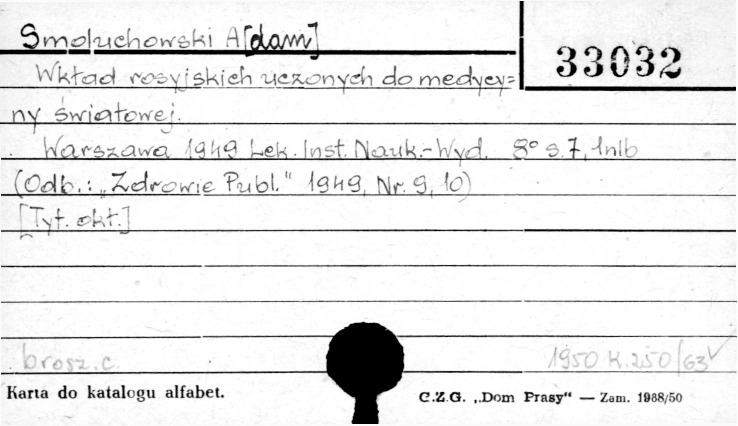 Smoluchowski A[dam]
33032
Wkład rosyjskich uczonych do medycy=
ny światowej.
Warszawa 1949 Lek. Inst. Nauk.-Wyd. 8° s.7, 1nlb
(Odb.: „Zdrowie Publ." 1949, Nr. 9, 10)
[Tyt. okł.]
brosz. c.
1950 K.250/63
Karta do katalogu alfabet.
C.Z.G. „Dom Prasy“ — Zam. 1988/50